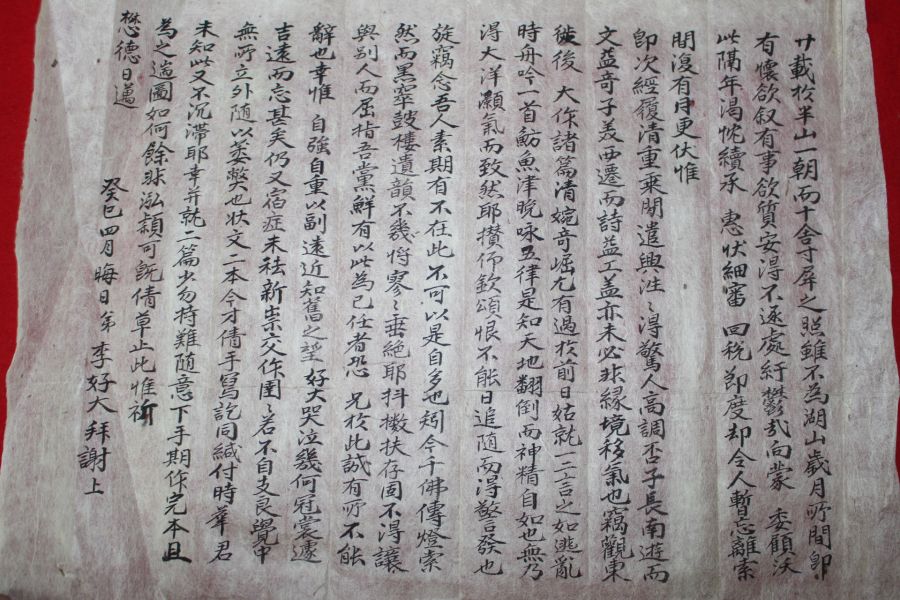 廿載於羊山一朝而十舍寸屛之照雖不為湖山歲月所間卽
有懷欲叙有事欲質安得不逐處紆鬱哉向蒙 委顧沃
此隔年渴忱續承 惠狀細審 回稅節度却令人暫忘離索
間復有月更伏惟
卽次經履淸重乘閒遣興洼〻得驚人高調否子長南遊而
文益奇子美西遷而詩益工盖亦未必非緣境移氣也竊觀東
徙後 大作諸篇淸婉奇崛尤有過於前日姑就一二言之如逃亂
時舟吟一首魴魚津晩咏五律是知天地翻倒而神精自如也無乃
得大洋灝氣而致然耶攅仰欽頌恨不能日追隨而得警發也
旋竊念吾人素期有不在此不可以是自多也矧今千佛傳燈索
然而黑窣皷樓遺韻不幾將寥〻垂絶耶抖擻扶存固不得讓
與别人而屈指吾黨鮮有以此為已任者恐 兄於此誠有所不能
辭也幸惟 自强自重以副遠近知舊之望 好大哭泣幾何冠裳遽
吉遠而忘甚矣仍又宿症未祛新祟交作圉〻若不自支良覺中
無所立外随以萎弊也狀文二本今才倩手寫訖同緘付時華君
未知此又不沉滯耶幸并就二篇少勿持難随意下手期作完本且
為之遄圖如何餘非泓穎可旣倩草止此惟祈
懋德日邁
癸巳四月晦日弟 李好大 拜謝 上